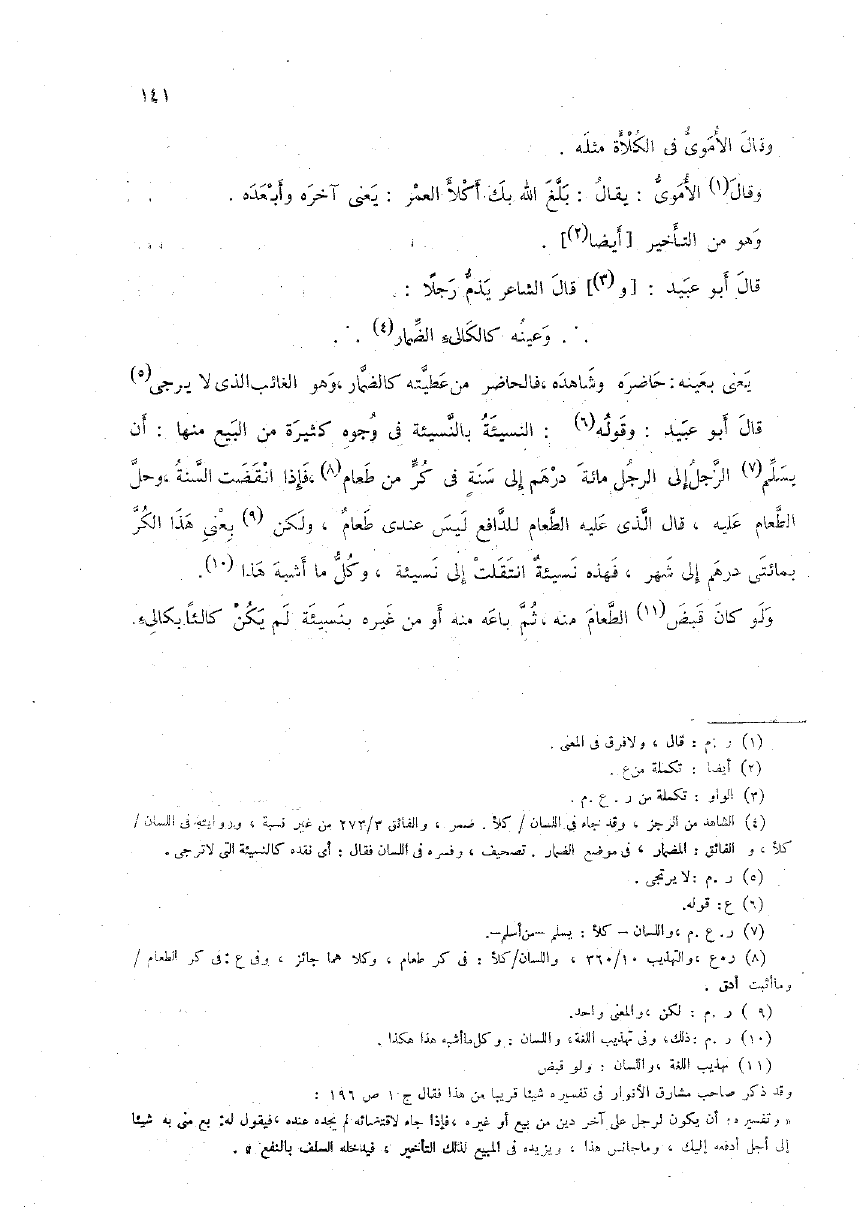 ١٤١
وقالَ الأُمَوىُّ فى الكُلْأَة مثلَه .
وَقالَ(١) الأُمَوىُّ : يقالُ : بَلَّغَ الله بكَ أَكْلأَ العمْر : يَعنى آخرَه وأَبْعَدَه .
وَهو من التأْخير [ أَيضا(٢)] .
قالَ أَبو عبَيد : [و (٣)] قالَ الشاعر يَذمُّ رَجلًا :
. ٠. وَعينُه كالكَالىء الضِّمار(٤) ٠. .
يَعنى بعَينه : حَاضرَه وشَاهدَه ، فالحاضر من عَطيَّته كالضمَّار ، وَهو الغائب الذى لا يرجى(٥)
قالَ أَبو عبَيد : وقَولُه(٦) : النسيئَةُ بالنَّسيئة فى وُجوه كثيرَة من البَيع منها : أَن
يسَلِّم(٧) الرَّجلُ إلى الرجُل مائةَ درْهَم إلى سَنَةٍ فى كُرٍّ من طَعام(٨) ، فَإذا انْقَضَت السَّنةُ ، وحلَّ
الطَّعام عَليه ، قال الَّذى عَليه الطَّعام للدَّافع لَيسَ عندى طَعامٌ ، ولَكن (٩) بِعْنى هَذَا الكُرَّ
بمائتَى درهَم إلى شَهر ، فَهذه نَسيئةٌ انتَقلَتْ إلى نَسيئة ، وكُلُّ ما أَشبهَ هَذا (١٠).
وَلَو كانَ قَبضَ(١١) الطَّعامَ منه ، ثُمَّ باعَه منه أَو من غَيره بنَسيئَة لَم يَكُنْ كالئاً بكالىءِ.
(١) ر .م : قال ، ولا فرق فى المعنى .
(٢) أيضا : تكملة من ع .
(٣) الواو : تكملة من ر . ع . م .
(٤) الشاهد من الرجز ، وقد جاء فى اللسان / كلأ . ضمر ، والفائق ٢٧٣/٣ من غير نسبة ، وروايته فى اللسان /
كلأ ، و الفائق : المضمار ، فى موضع الضمار . تصحيف ، وفسره فى اللسان فقال : أى نقده كالنسيئة التى لا ترجى .
(٥) ر .م : لا يرتجى .
(٦) ع : قوله.
(٧) ر . ع .م ، واللسان – كلأ : يسلم –من أسلم–.
(٨) ر.ع ، والتهذيب ٣٦٠/١٠ ، واللسان/كلأ : فى كر طعام ، وكلا هما جائز ، وفى ع : فى كر الطعام /
وما أثبت أدق .
(٩ ) ر .م : لكن ، والمعنى واحد.
(١٠) ر .م : ذلك ، وفى تهذيب اللغة ، واللسان : وكل ما أشبه هذا هكذا .
(١١) تهذيب اللغة ، واللسان : ولو قبض
وقد ذكر صاحب مشارق الأنوار فى تفسيره شيئا قريبا من هذا فقال ج ١ ص ١٩٦ :
« وتفسيره : أن يكون لرجل على آخر دين من بيع أو غيره ، فإذا جاء لاقتضائه لم يجده عنده ، فيقول له : بع منى به شيئا
إلى أجل أدفعه إليك ، وما جانس هذا ، ويزيده فى المبيع لذلك التأخير ، فيدخله السلف بالنفع » .